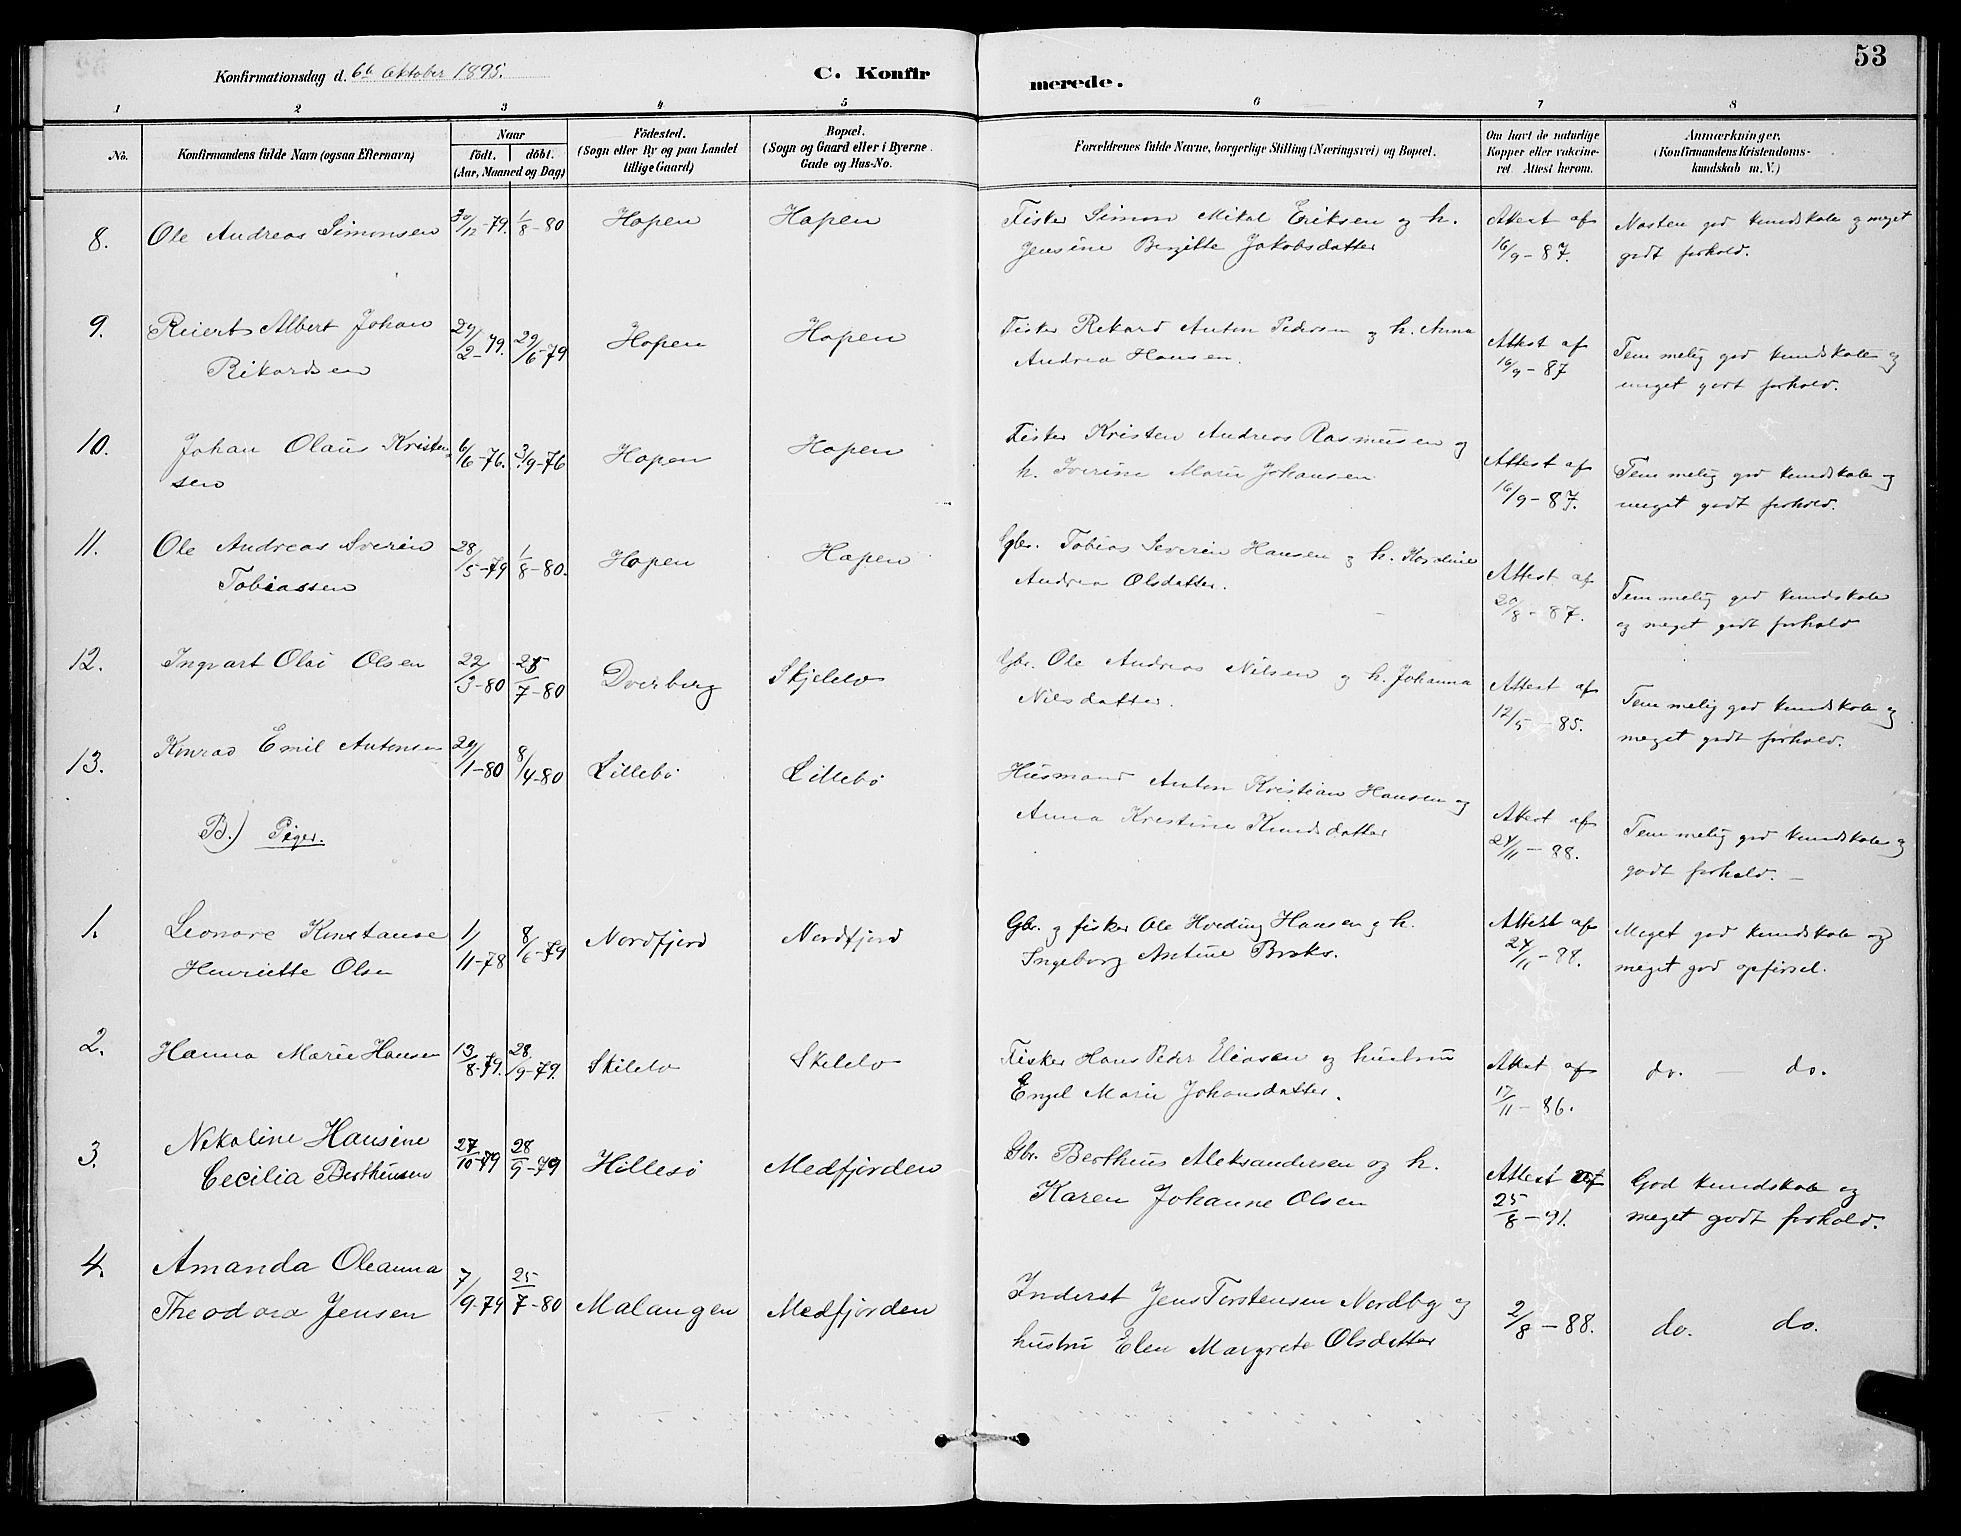 53
Konfirmationsdag d. 6te Oktober 1895.
C. Konfirmerede.
1 2 3 4 5 6 7 8
No.
Konfirmandens fulde Navn (ogsaa Efternavn)
Naar
födt. döbt.
(Aar, Maaned og Dag)
Födested.
(Sogn eller By og paa Landet
tillige Gaard)
Bopæl.
(Sogn og Gaard eller i Byerne
Gade og Hus-No.
Forældrenes fulde Navne, borgerlige Stilling (Næringsvei) og Bopæl.
Om havt de naturlige
Kopper eller vakcine-
ret. Attest herom.
Anmærkninger.
(Konfirmandens Kristendoms-
kundskab m. V.)
8. Ole Andreas Simonsen 30/12-79. 1/8-80 Hopen Hopen Fisker Simon Mikal Eriksen og h. Attest af Næsten god kundskab og meget
Jensine Bergitte Jakobsdatter 16/9-87. godt forhold.
9. Reiert Albert Johan 29/2-79. 29/6-79 Hopen Hopen Fisker Rikard Anton Pedersen og h. Anna Attest af Temmelig god kundskab og
Rikardsen Andrea Hansen. 16/9-87 meget godt forhold.
10. Johan Olaus Kristen 6/6-76. 3/9-76 Hopen Hopen Fisker Kristen Andreas Rasmussen og Attest af Temmelig god kundskab og
sen h. Iverine Marie Johansen 16/9-87. meget godt forhold.
11. Ole Andreas Sverin 28/5-79 1/8-80. Hopen Hopen Gbr. Tobias Severin Hansen og h. Korneline Attest af Temmelig god kundskab
Tobiassen Andrea Olsdatter. 20/8-87. og meget godt forhold
12. Ingvart Olai Olsen 22/3-80 25/7-80 Dverberg Skjelelv Gbr. Ole Andreas Nilsen og h. Johanna Attest af Temmelig god kundskab og
Nilsdatter. 12/5-85. meget godt forhold.
13. Konrad Emil Antonsen 29/1-80 8/4-80 Lillebö Lillebö Husmand Anton Kristian Hansen og Attest af Temmelig god kundskab og
Anna Kristine Knudsdatter 24/11-88. godt forhold. -
B.) Piger.
1. Leonore Konstanse 1/11-78 8/6-79 Nordfjord Nordfjord Gbr. og fisker Ole Hveding Hansen og h. Attest af Meget god kundskab og
Henriette Olsen Ingeborg Antine Broks. 24/11-88. meget god opførsel.
2. Hanna Marie Hansen 13/8-79. 28/9-79. Skilelv Skilelv Fisker Hans Peder Eliasen og hustru Attest af do. - do.
Engel Marie Johansdatter. 17/11-86.
3. Nekoline Hansine 27/10-79 28/9-79 Hillesö Medfjorden Gbr. Berthius Aleksandersen og h. Attest af God kundskab og
Cecilia Berthiusen Karen Johanne Olsen 25/8-91. meget godt forhold.
4. Amanda Oleanna 7/9-79 25/7-80 Malangen Medfjorden Inderst Jens Torstensen Nordby og 2/8-88. do. do.
Theodora Jensen hustru Elen Margrete Olsdatter